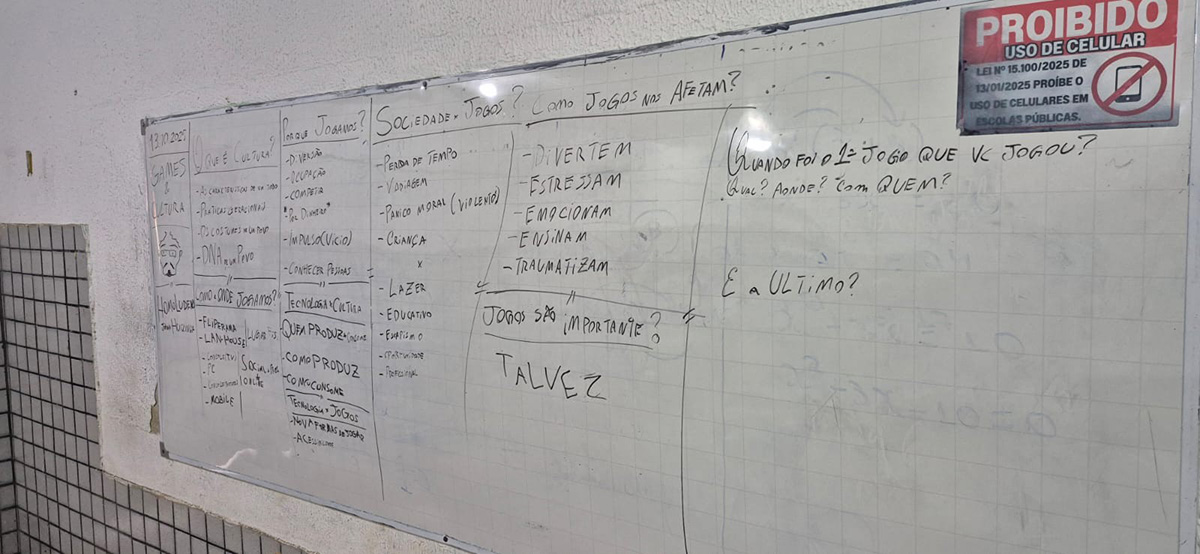 PROIBIDO
USO DE CELULAR
LEI Nº 15.100/2025 DE
13/01/2025 PROÍBE O
USO DE CELULARES EM
ESCOLAS PÚBLICAS.
13.10.2025
GAMES
&
CULTURA
HOMO LUDENS
O QUE É CULTURA?
- DNA DE UM POVO
COMO E ONDE JOGAMOS?
- FLIPERAMA
- LAN-HOUSE
- PC
- MOBILE
SOCIAL
ONLINE
POR QUE JOGAMOS?
- DIVERSÃO
- OCUPAÇÃO
- COMPETIR
"POR DINHEIRO"
- IMPULSO (VICIO)
- CONHECER PESSOAS
TECNOLOGIA E CULTURA
QUEM PRODUZ
- COMO PRODUZ
- COMO CONSOME
TECNOLOGIA JOGOS
- NOVA FORMAS
SOCIEDADE x JOGOS?
- PERDA DE TEMPO
- VADIAGEM
- PANICO MORAL (VIOLENTO)
- CRIANÇA
x
- LAZER
- EDUCATIVO
- ESCAPISMO
- OPORTUNIDADE
- PROFISSIONAL
COMO JOGOS NOS AFETAM?
- DIVERTEM
- ESTRESSAM
- EMOCIONAM
- ENSINAM
- TRAUMATIZAM
JOGOS SÃO IMPORTANTE?
TALVEZ
QUANDO FOI O 1º JOGO QUE VC JOGOU?
QUAL? AONDE? COM QUEM?
E o ULTIMO?